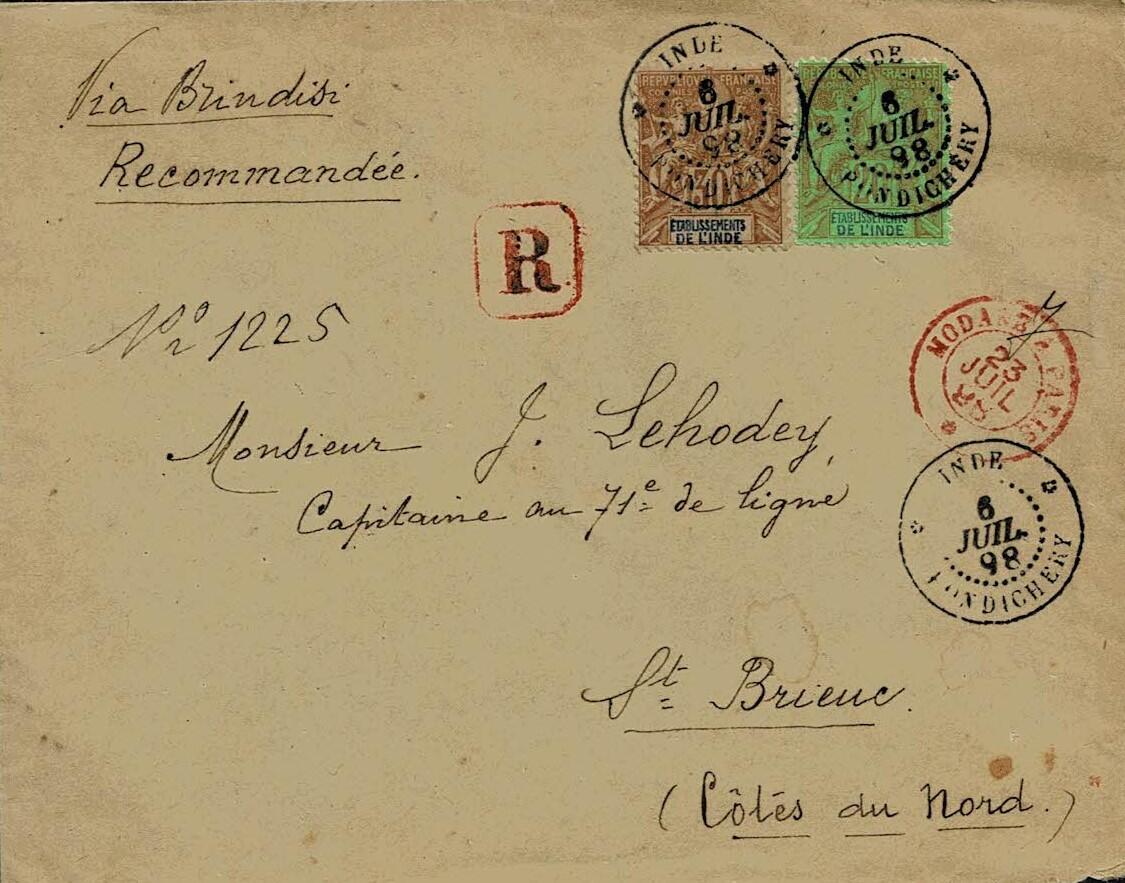 Via Brindisi
Recommandée.
INDE
6
JUIL.
98
PONDICHERY
REPUBLIQUE FRANÇAISE
30
ÉTABLISSEMENTS
DE L'INDE
INDE
6
JUIL.
98
PONDICHERY
REPUBLIQUE FRANÇAISE
ÉTABLISSEMENTS
DE L'INDE
R
Nº 1225
MODANE A PARIS
23
JUIL
Monsieur J. Lehodey
Capitaine au 71e de ligne
INDE
6
JUIL.
98
PONDICHERY
St Brieuc.
(Côtés du Nord.)